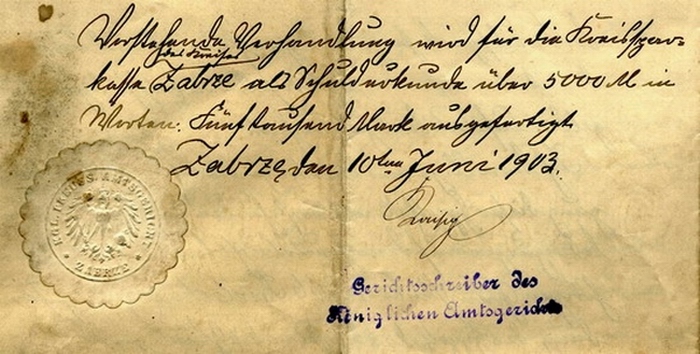 Vorstehende Verhandlung wird für die Kreisspar-
des Kreises
kasse Zabrze als Schuldurkunde über 5000 M in
Worten: Fünftausend Mark ausgefertigt
Zabrze, den 10ten Juni 1903.
Gerichtsschreiber des
Königlichen Amtsgerichts
KGL. PREUSS. AMTSGERICHT
* ZABRZE *